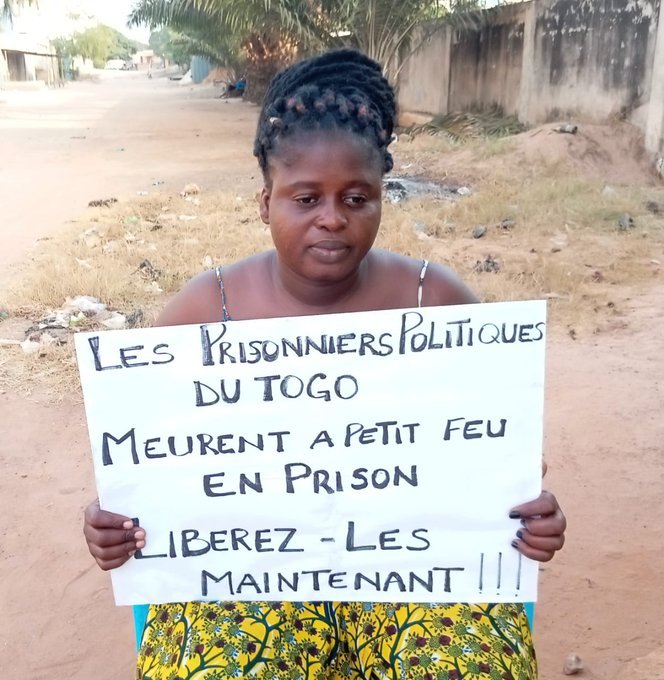 LES PRISONNIERS POLITIQUES
DU TOGO
MEURENT A PETIT FEU
EN PRISON
LIBEREZ - LES
MAINTENANT !!!